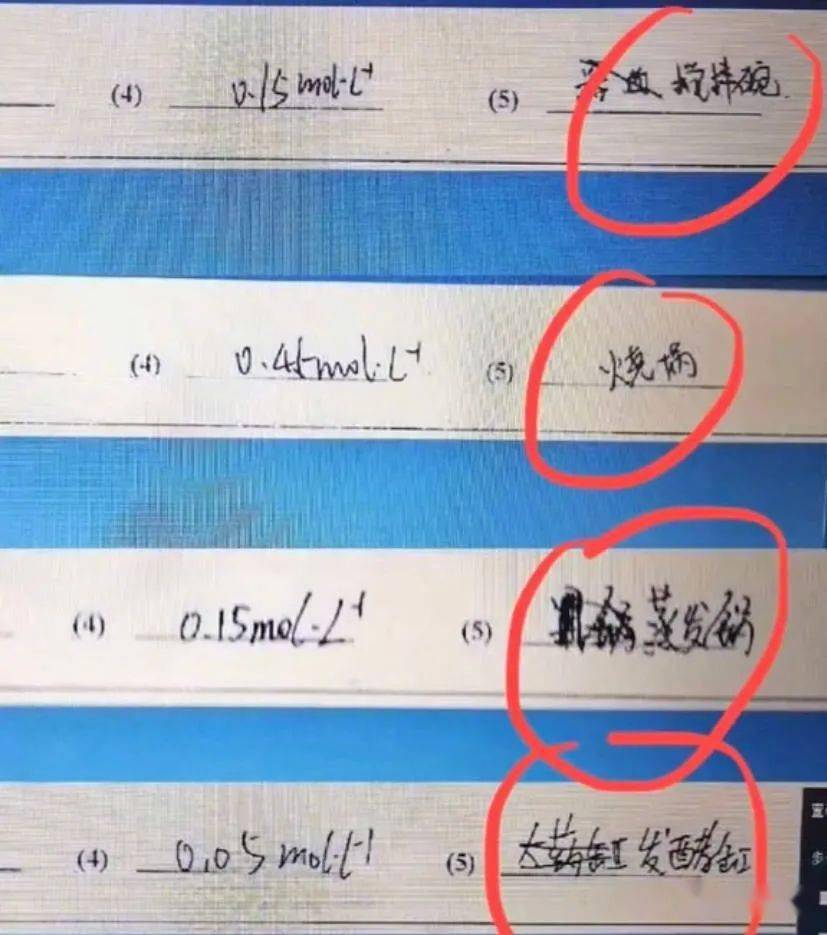 (4) 0.15mol·L⁻¹ (5) 搅拌碗
(4) 0.45mol·L⁻¹ (5) 烧埚
(4) 0.15mol·L⁻¹ (5) 蒸发锅
(4) 0.05mol·L⁻¹ (5) 大药缸 发酵缸
步